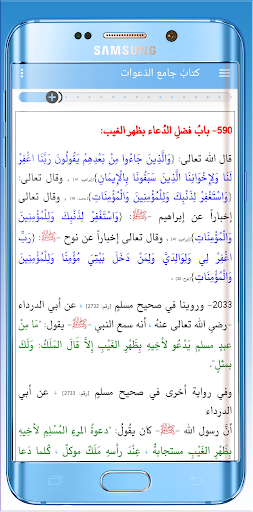 SAMSUNG
كتابُ جامع الدّعوات
590– بابُ فضلِ الدُّعاء بظهر الغيب:
قال الله تعالى: {وَالَّذِينَ جَاءُوا مِنْ بَعْدِهِمْ يَقُولُونَ رَبَّنَا اغْفِرْ
لَنَا وَلِإِخْوَانِنَا الَّذِينَ سَبَقُونَا بِالْإِيمَانِ} وقال تعالى:
{وَاسْتَغْفِرْ لِذَنْبِكَ وَلِلْمُؤْمِنِينَ
وَالْمُؤْمِنَاتِ} وقال تعالى
إخباراً عن إبراهيم –ﷺ–:
وقال تعالى إخباراً عن نوح –ﷺ–: {رَبِّ
اغْفِرْ لِي وَلِوَالِدَيَّ وَلِمَنْ دَخَلَ بَيْتِيَ مُؤْمِنًا وَلِلْمُؤْمِنِينَ
وَالْمُؤْمِنَاتِ}
2033– وروينا في صحيح مسلم [رقم: 2732] ، عن أبي الدرداء
–رضي الله تعالى عنهُ، أنه سمع النبي –ﷺ– يقول: "مَا مِنْ
عبدٍ مسلمٍ يَدْعُو لأخِيهِ بِظَهْرِ الغَيْبِ إِلاَّ قَالَ المَلَكُ: وَلَكَ
بِمِثْلٍ".
وفي رواية أخرى في صحيح مسلم ، عن أبي
الدرداء
أنَّ رسول الله –ﷺ– كان يقُولُ: "دعوةُ المرءِ المُسْلِمِ لأخِيهِ
بِظَهْرِ الغَيْبِ مستجابةٌ، عِنْدَ رأسِهِ ملَكٌ موكلٌ، كُلما دَعا